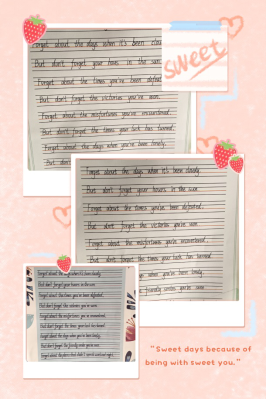 Forget about the days when it's been clou
But don't forget your hours in the sun.
Forget about the times you've been defeat
But don't forget the victories you've won.
Forget about the misfortunes you've encountered.
But don't forget the times your luck has turned.
Forget about the days when you've been lonely.
But don't
sweet
Forget about the days when it's been cloudy.
But don't forget your hours in the sun.
Forget about the times you've been defeated.
But don't forget the victories you've won.
Forget about the misfortunes you've encountered.
But don't forget the times your luck has turned.
days when you've been lonely.
friendly smiles you've seen.
Forget about the days when it's been cloudy.
But don't forget your hours in the sun.
Forget about the times you've been defeated.
But don't forget the victories you've won.
Forget about the misfortunes you've encountered.
But don't forget the times your luck has turned.
Forget about the days when you've been lonely.
But don't forget the friendly smiles you've seen.
Forget about the plans that didn't
"Sweet days because of
being with sweet you."